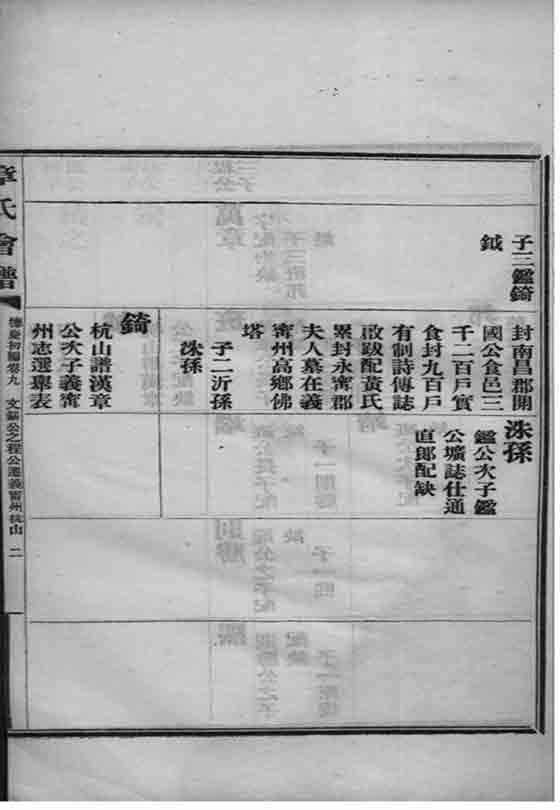 子三鑑錡
鉞
封南昌郡開
國公食邑三
千二百戶實
食封九百戶
有制詩傳誌
啟跋配黃氏
累封永甯郡
夫人墓在義
甯州高鄉佛
塔
子二沂孫
洙孫
錡
杭山譜漢章
公次子義甯
州志選舉表
洙孫
鑑公次子鑑
公壙誌仕通
直郎配缺
章氏會譜
卷九
公之程公遷義甯州杭山 二